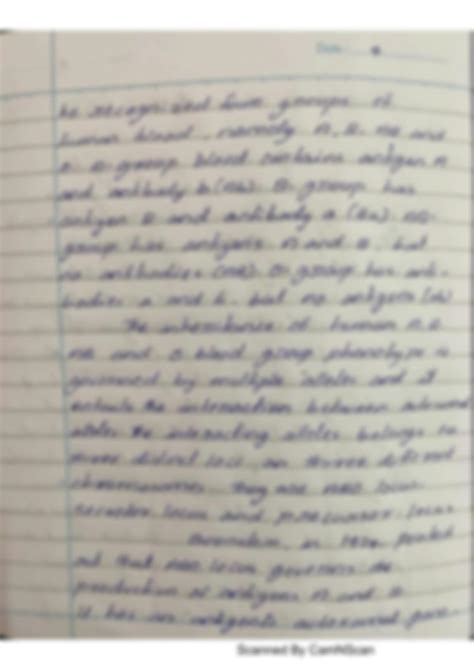 Date
he recognised four groups of
human blood, namely A, B, AB and
O. A-group blood contains antigen A
and antibody b (Ab). B-group has
antigen B and antibody a (Ba). AB-
group has antigens A and B, but
no antibodies (AB). O-group has anti-
bodies a and b, but no antigens (ab)
The inheritance of human A, B
AB and O blood group phenotype is
governed by multiple alleles and it
entails the interaction between
alleles the interacting alleles belongs to
three distinct loci, on three different
chromosomes. They are ABO locus
secretor locus and precursor locus
Bernstein, in 1924, pointed
out that ABO locus governs the
production of antigens A and B
it has an
Scanned By CamNScan